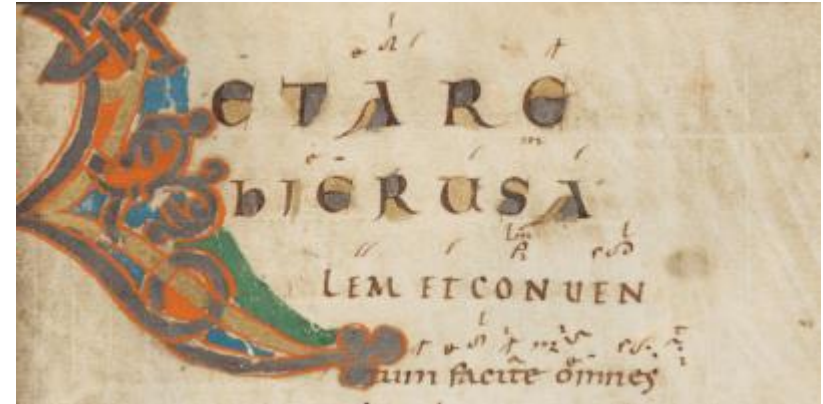 LETARE
hIERUSA
LEM ET CONUEN
tum facite omnes